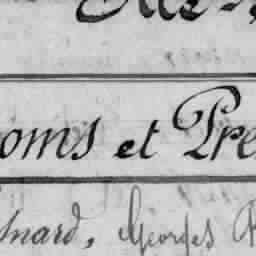 oms et Pre
nard, Georges